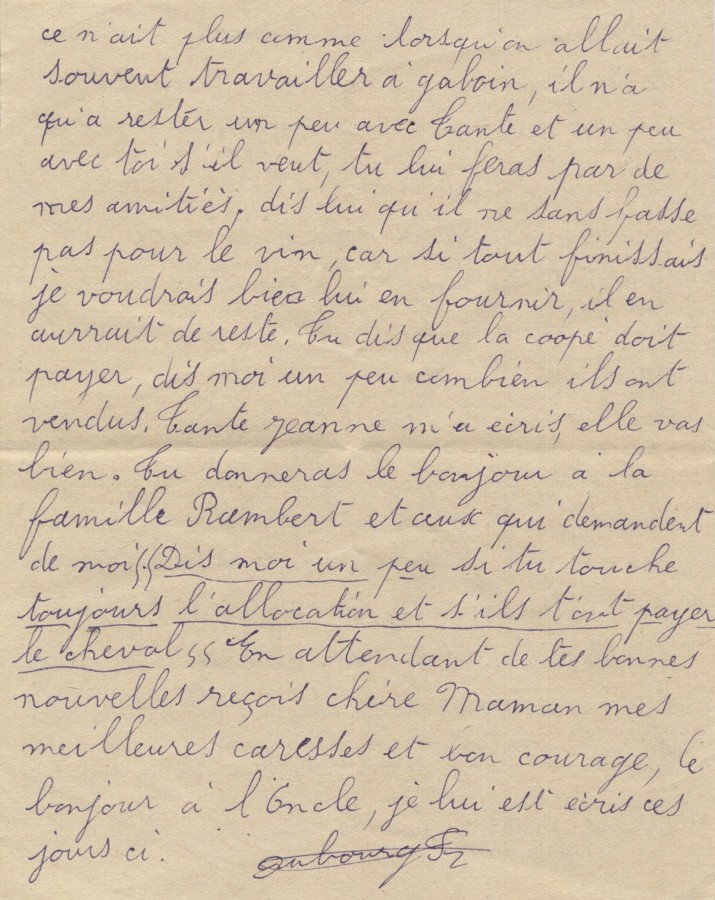 ce n'ait plus comme lorsqu'on allait
souvent travailler à gaboin, il n'a
qu'a rester un peu avec Tante et un peu
avec toi s'il veut, tu lui feras par de
mes amitiés, dis lui qu'il ne sans fasse
pas pour le vin, car si tout finissais
je voudrais bien lui en fournir, il en
aurrait de reste. Tu dis que la coopé doit
payer, dis moi un peu combien ils ont
vendus. Tante jeanne m'a écris, elle vas
bien. Tu donneras le bonjour à la
famille Rambert et aux qui demandent
de moi (( Dis moi un peu si tu touche
toujours l'allocation et s'ils t'ont payer
le cheval (( En attendant de tes bonnes
nouvelles reçois chère Maman mes
meilleures caresses et bon courage, le
bonjour à l'Oncle, je lui est écris ces
jours ci. Aubourg F